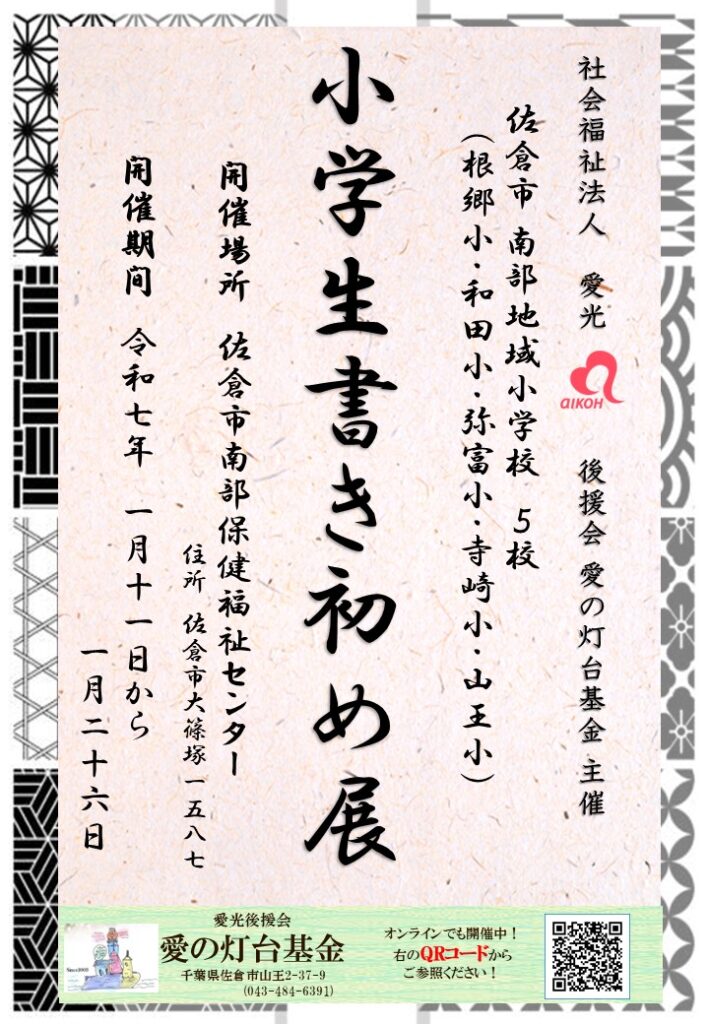 社会福祉法人 愛光 後援会 愛の灯台基金 主催
aIKOH
佐倉市 南部地域小学校 5校
（根郷小・和田小・弥富小・寺崎小・山王小）
小学生書き初め展
開催場所 佐倉市南部保健福祉センター
住所 佐倉市大篠塚一五八七
開催期间 令和七年 一月十一日から
一月二十六日
Since2003
愛光後援会
愛の灯台基金
千葉県佐倉市山王2-37-9
(043-484-6391)
オンラインでも開催中！
右のQRコードから
ご参照ください！